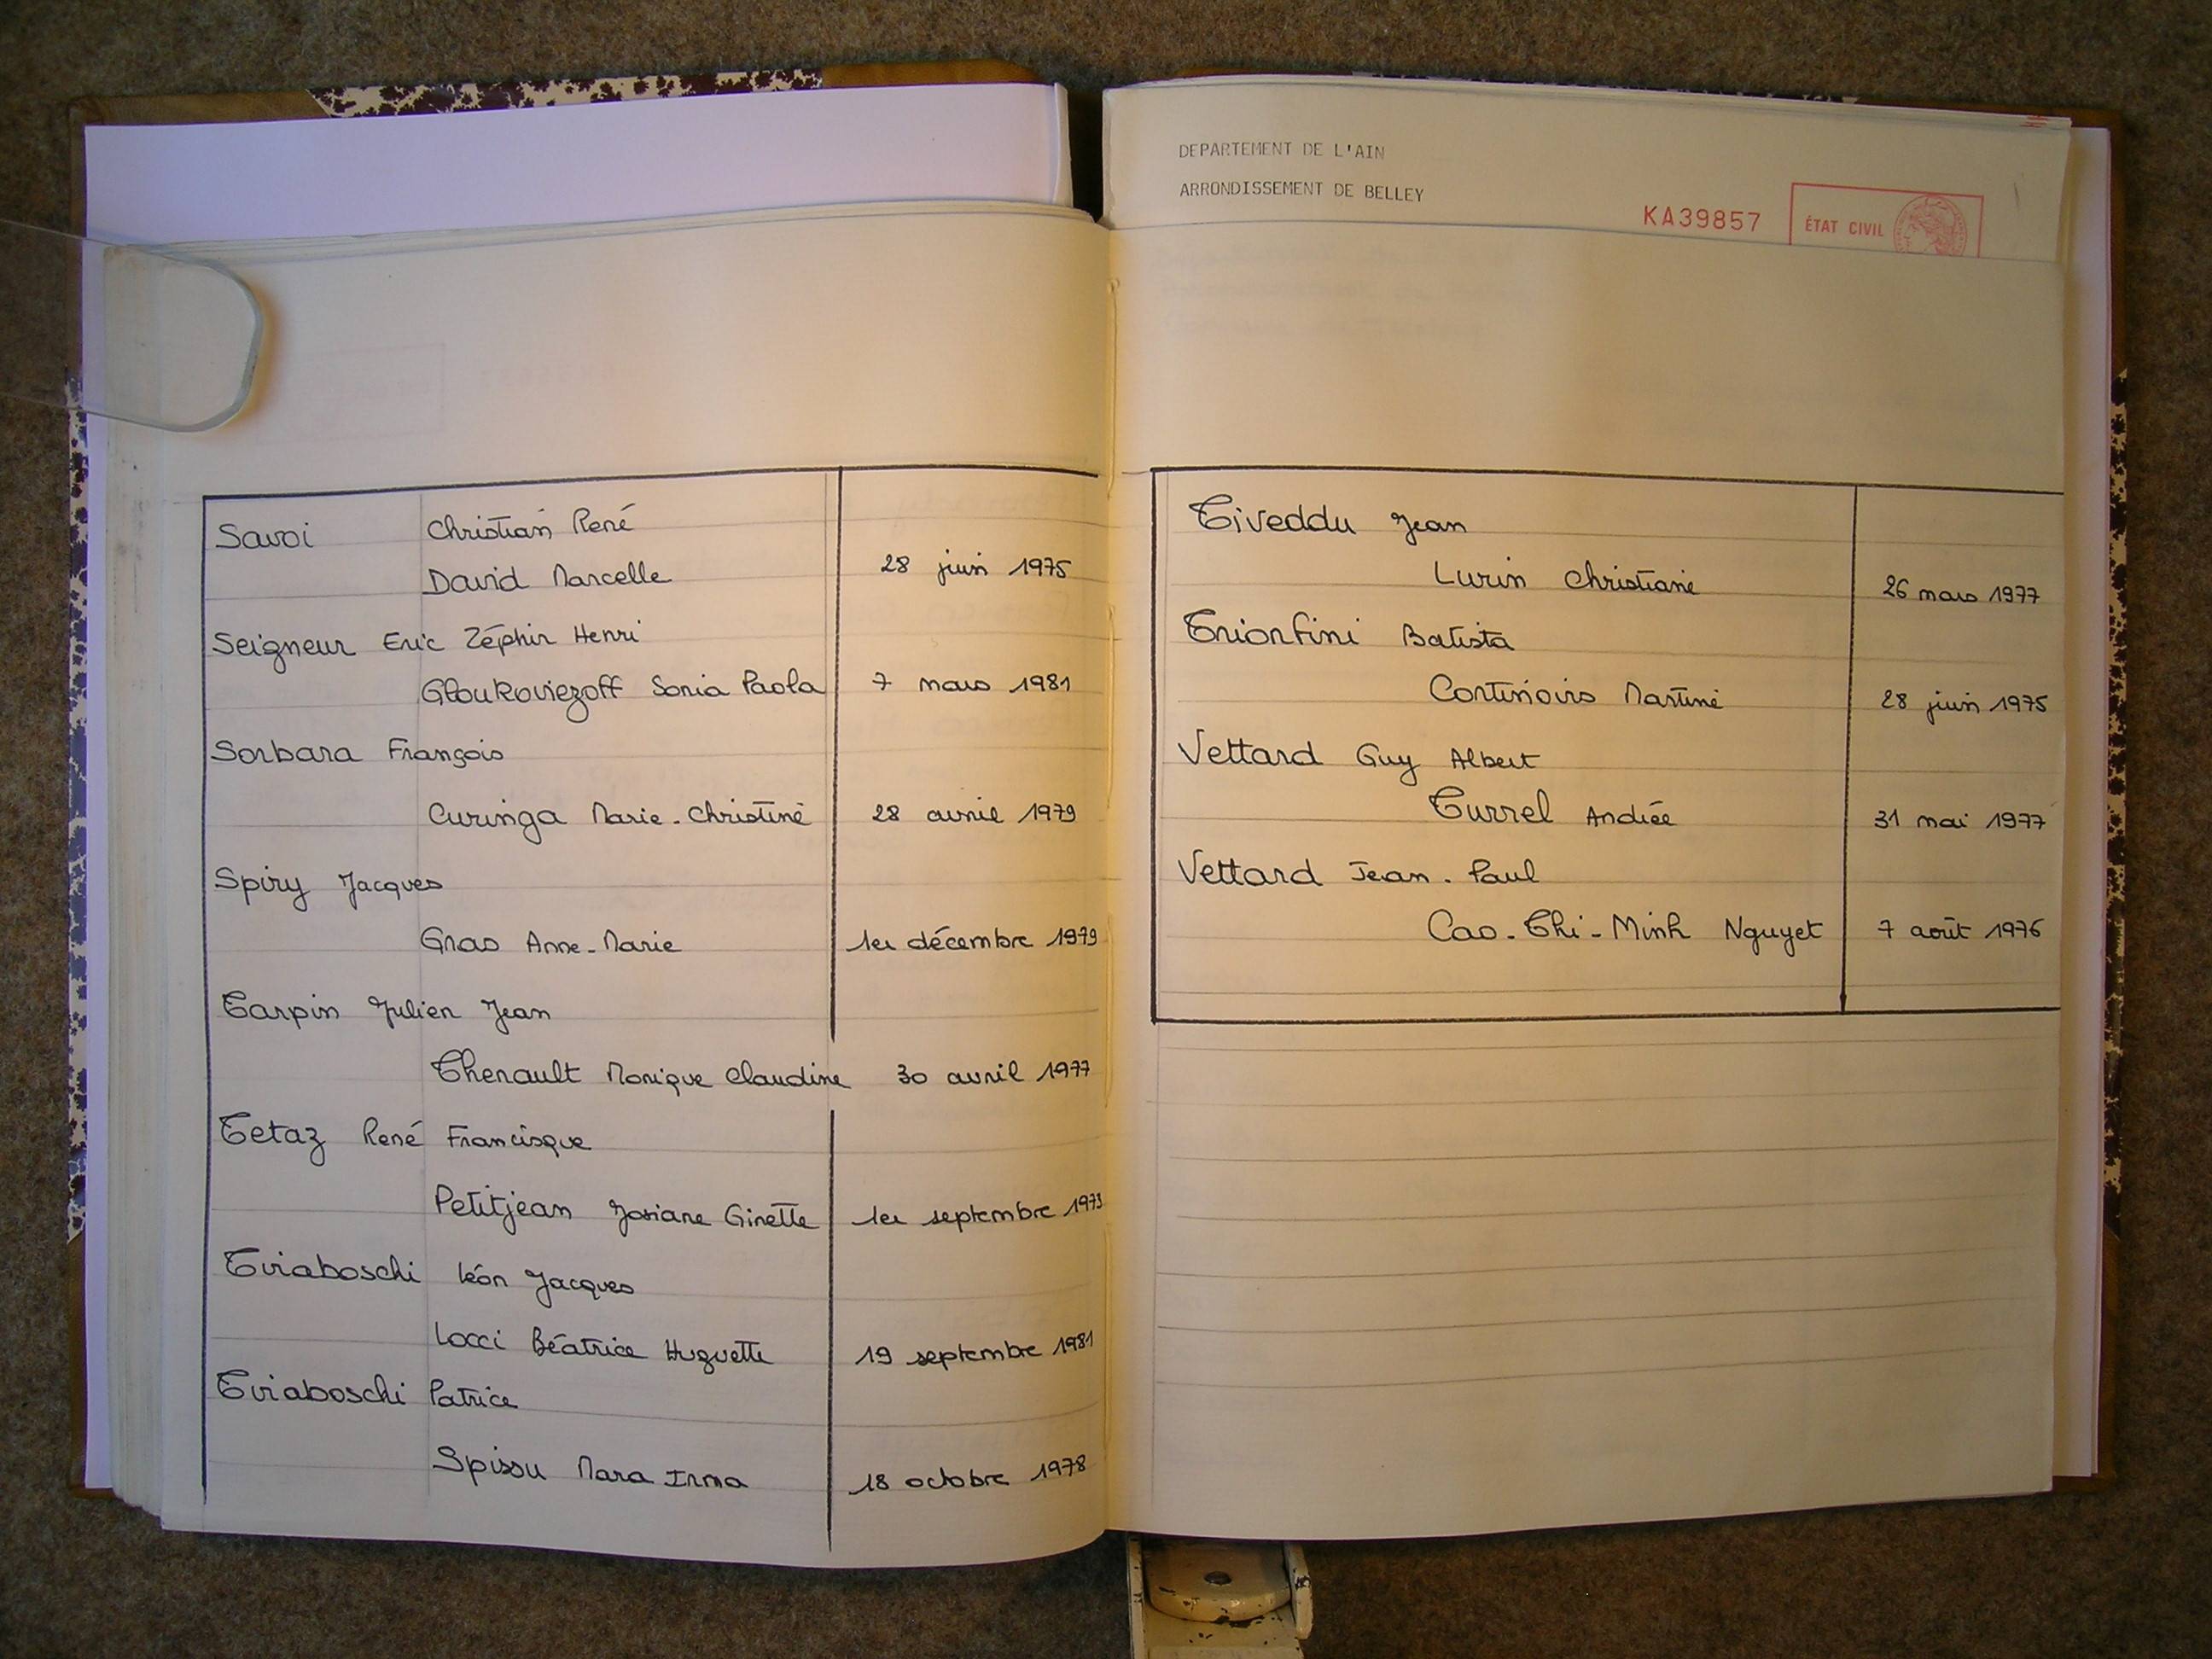 DEPARTEMENT DE L'AIN
ARRONDISSEMENT DE BELLEY
KA39857
ÉTAT CIVIL
Savoi Christian René
David Marcelle 28 juin 1975
Seigneur Eric Zéphir Henri
Gloukoviezoff Sonia Paola 7 mars 1981
Sorbara François
Curinga Marie-Christine 28 avril 1979
Spiry Jacques
Gras Anne-Marie 1er décembre 1979
Tarpin Julien Jean
Thenault Monique Claudine 30 avril 1977
Tetaz René Francisque
Petitjean Josiane Ginette 1er septembre 1973
Tviaboschi Léon Jacques
Locci Béatrice Huguette 19 septembre 1981
Tviaboschi Patrice
Spissu Mara Irma 18 octobre 1978
Tiveddu Jean
Lurin Christiane 26 mars 1977
Trionfini Batista
Continoirs Martine 28 juin 1975
Vettard Guy Albert
Turrel Andrée 31 mai 1977
Vettard Jean-Paul
Cao-Thi-Minh Nguyet 7 août 1976